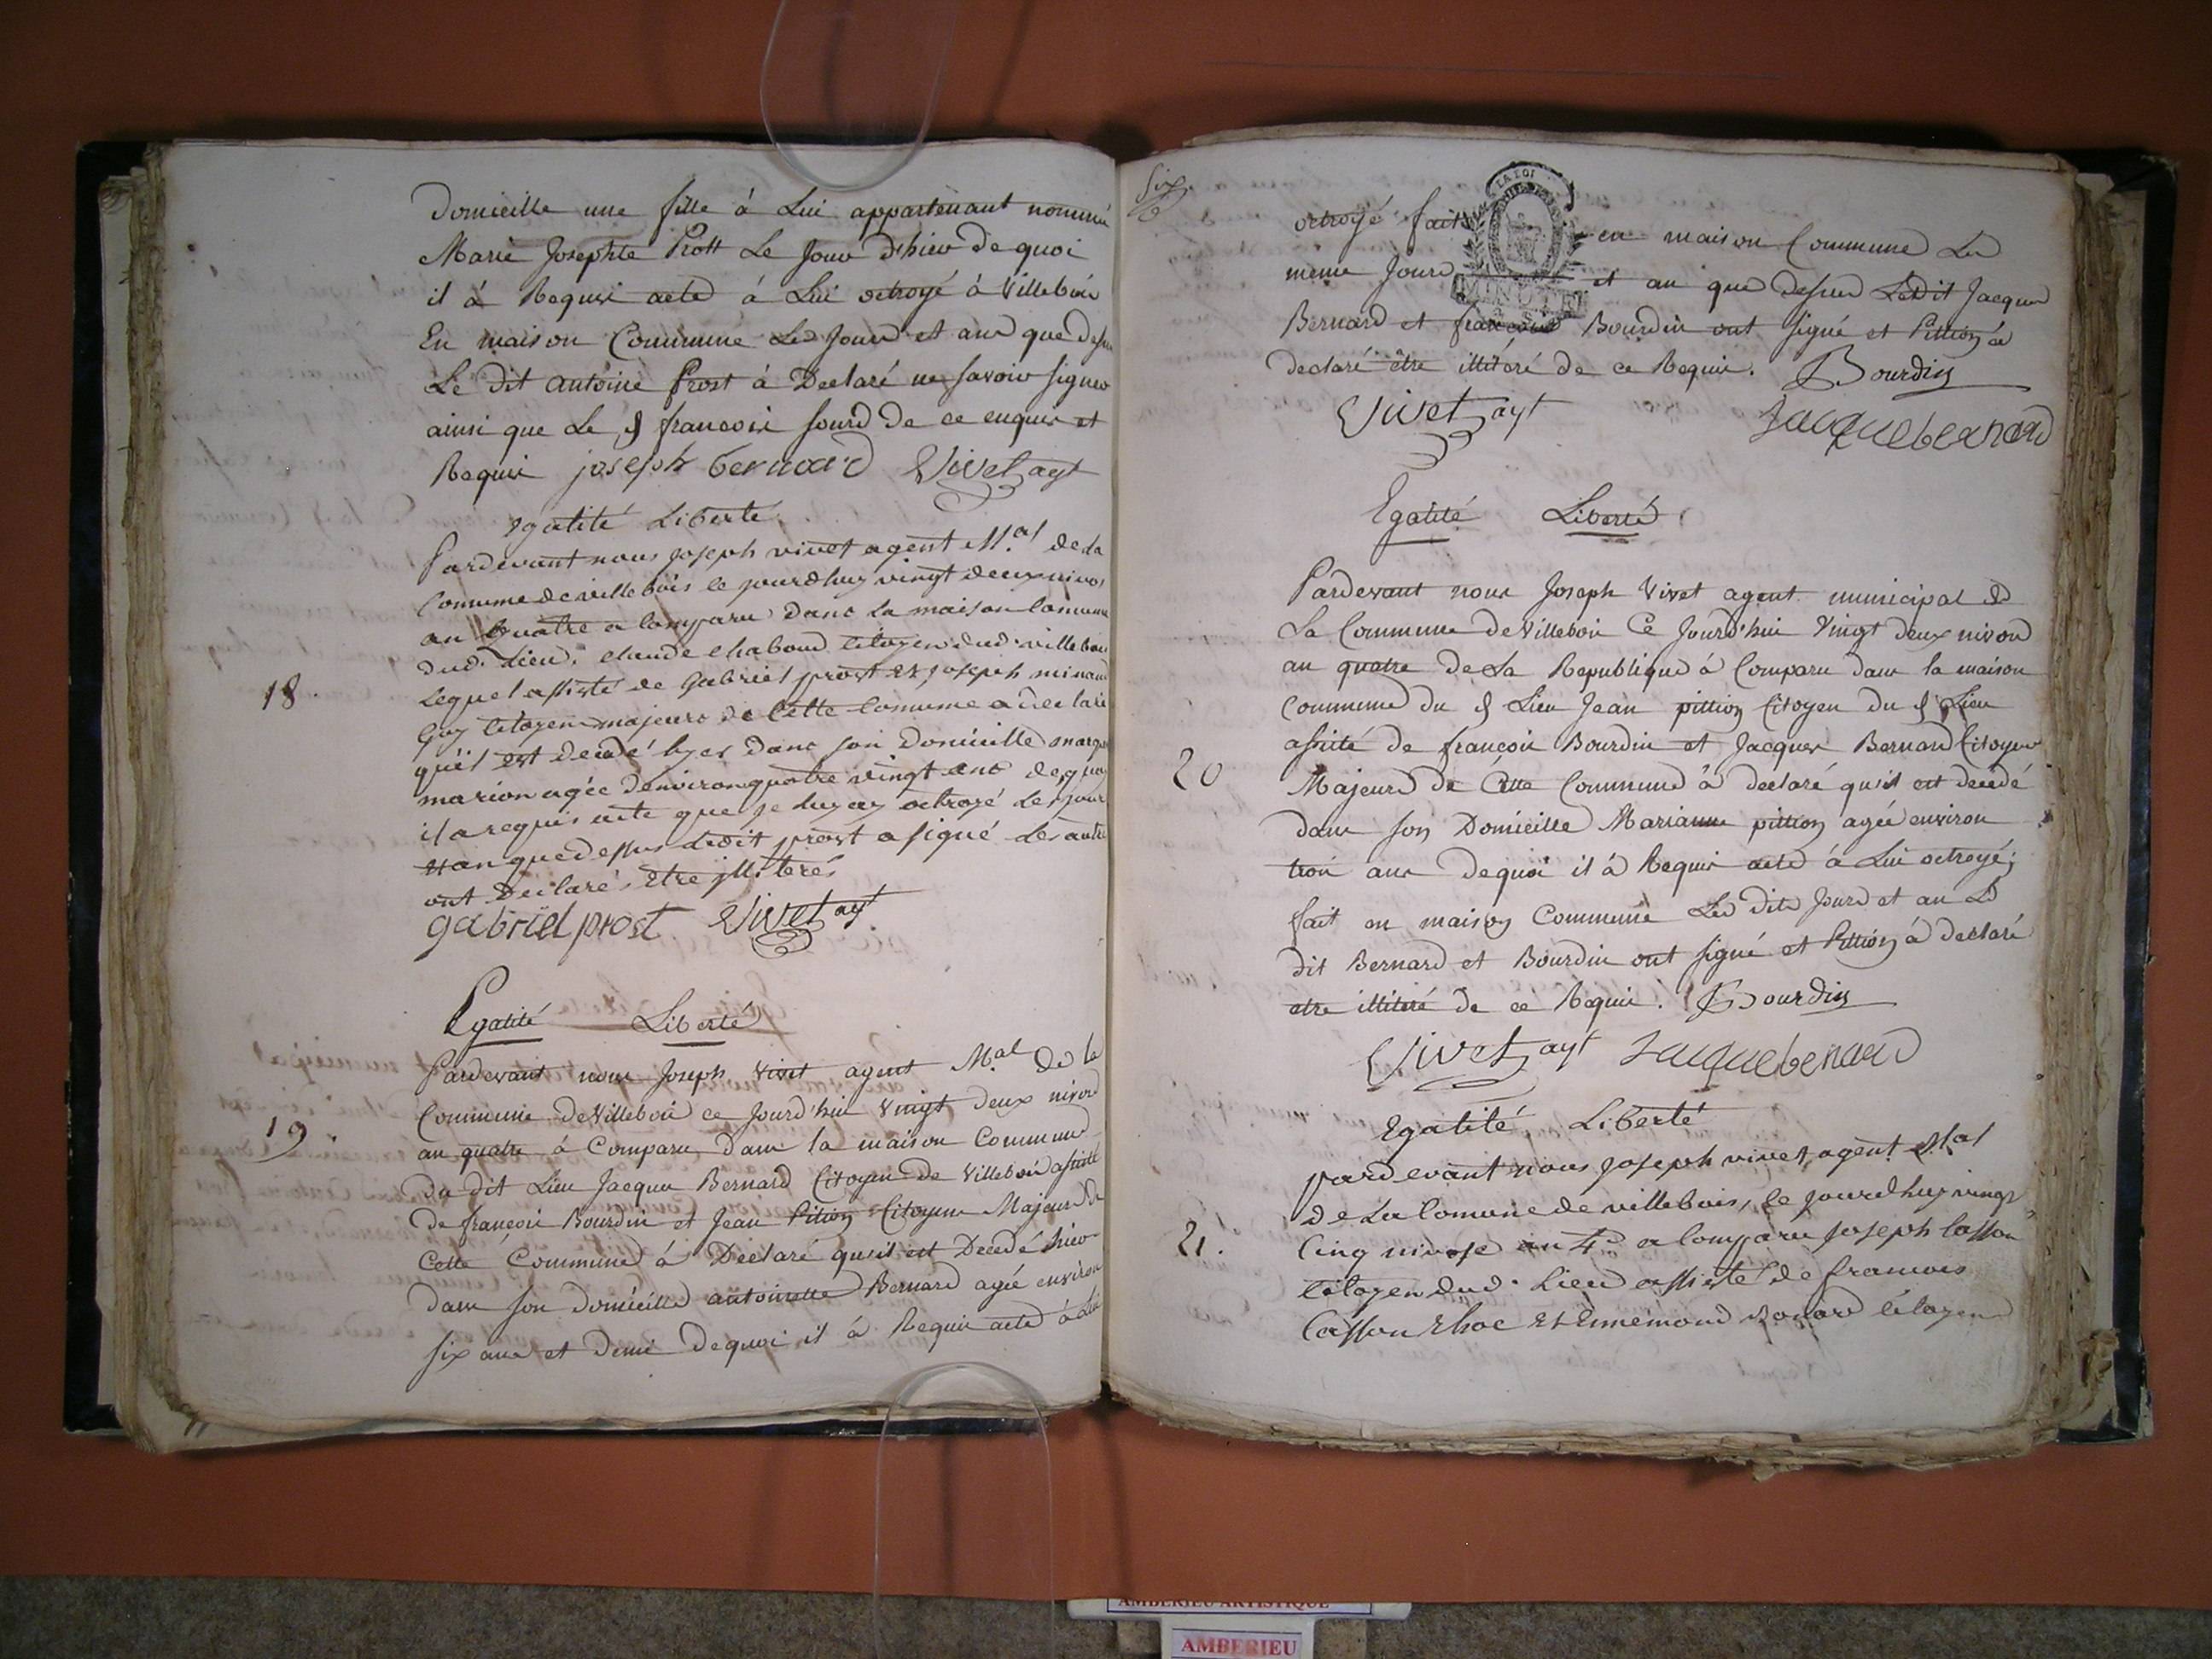 domicille une fille á Lui appartenant nommée
Marie Josephte Prott Le Jour d'hier de quoi
il á Requis acte á Lui octroyé á Villebois
En maison Commune Les Jour et an que dessus
Le dit antoine Prost á Declaré ne savoir signer
ainsi que Le françois sourd de ce enquis et
Requis joseph bernard Vivet agt
Egatité Liberté
18.
Pardevant nous joseph vivet agent M.al de la
Comume de villebois le jourdhuy vingt deux nivos
an quatre a Comparu dans La maison Comune
dud. Lieu. claude chaboud Citoyen dud. villebois
Lequel assisté de gabriel prost et joseph minand
Guy Citoyens majeurs de Cette Comume a declaré
qu'il est decedé hyer dans son domicille marg
marion agée denviron quatre vingt ans de quoy
il a requis acte que je luy ay octroyé Les jour
et an que dessus Ledit prost a signé Les autres
ont Declarés Etre illiterés
gabriel prost Vivet agt
Egatité Liberté
19.
Pardevant nous Joseph Vivet agent M.al de la
Commune de Villebois ce Jourd'hui Vingt deux nivos
an quatre á Comparu dans la maison Commune
du dit Lieu Jacques Bernard Citoyen de Villebois assisté
de françois Bourdin et Jean Pition Citoyens Majeurs de
Cette Commune á Declaré qu'il est Decedé hier
dans son domicille antoinette Bernard agée environ
six ans et demi de quoi il á Requis acte á Lui
six
octroyé fait en maison Commune Les
LA LOI
MINUTE
meme Jour et an que dessus Ledit Jacques
Bernard et françois Bourdin ont signé et Pittion á
declaré être illitéré de ce Requis. Bourdin
Vivet agt Jacque bernard
Egatité Liberté
20
Pardevant nous Joseph Vivet agent municipal de
La Commune de Villebois Ce Jourd'hui Vingt deux nivos
an quatre de La Republique á Comparu dans la maison
Commune du Lieu Jean pittion Citoyen du Lieu
assisté de françois Bourdin et Jacques Bernard Citoyens
Majeurs de Cette Commune á declaré qu'il est decedé
dans son Domicille Marianne pittion agée environ
trois ans de quoi il á Requis acte á Lui octroyé;
fait en maison Commune Les dits Jours et an Le
dit Bernard et Bourdin ont signé et Pittion á declaré
etre illiteré de ce Requis. Bourdin
Vivet agt Jacque benard
Egatité, Liberté
21.
pardevant nous joseph vivet agent M.al
de La Comune de villebois, le jourdhuy vingt
Cinq nivose an 4e a Comparu joseph Casson
Citoyen dud. Lieu assisté de francois
Casson Et Ennemond Citoyens
AMBERIEU ARTISTIQUE
AMBERIEU